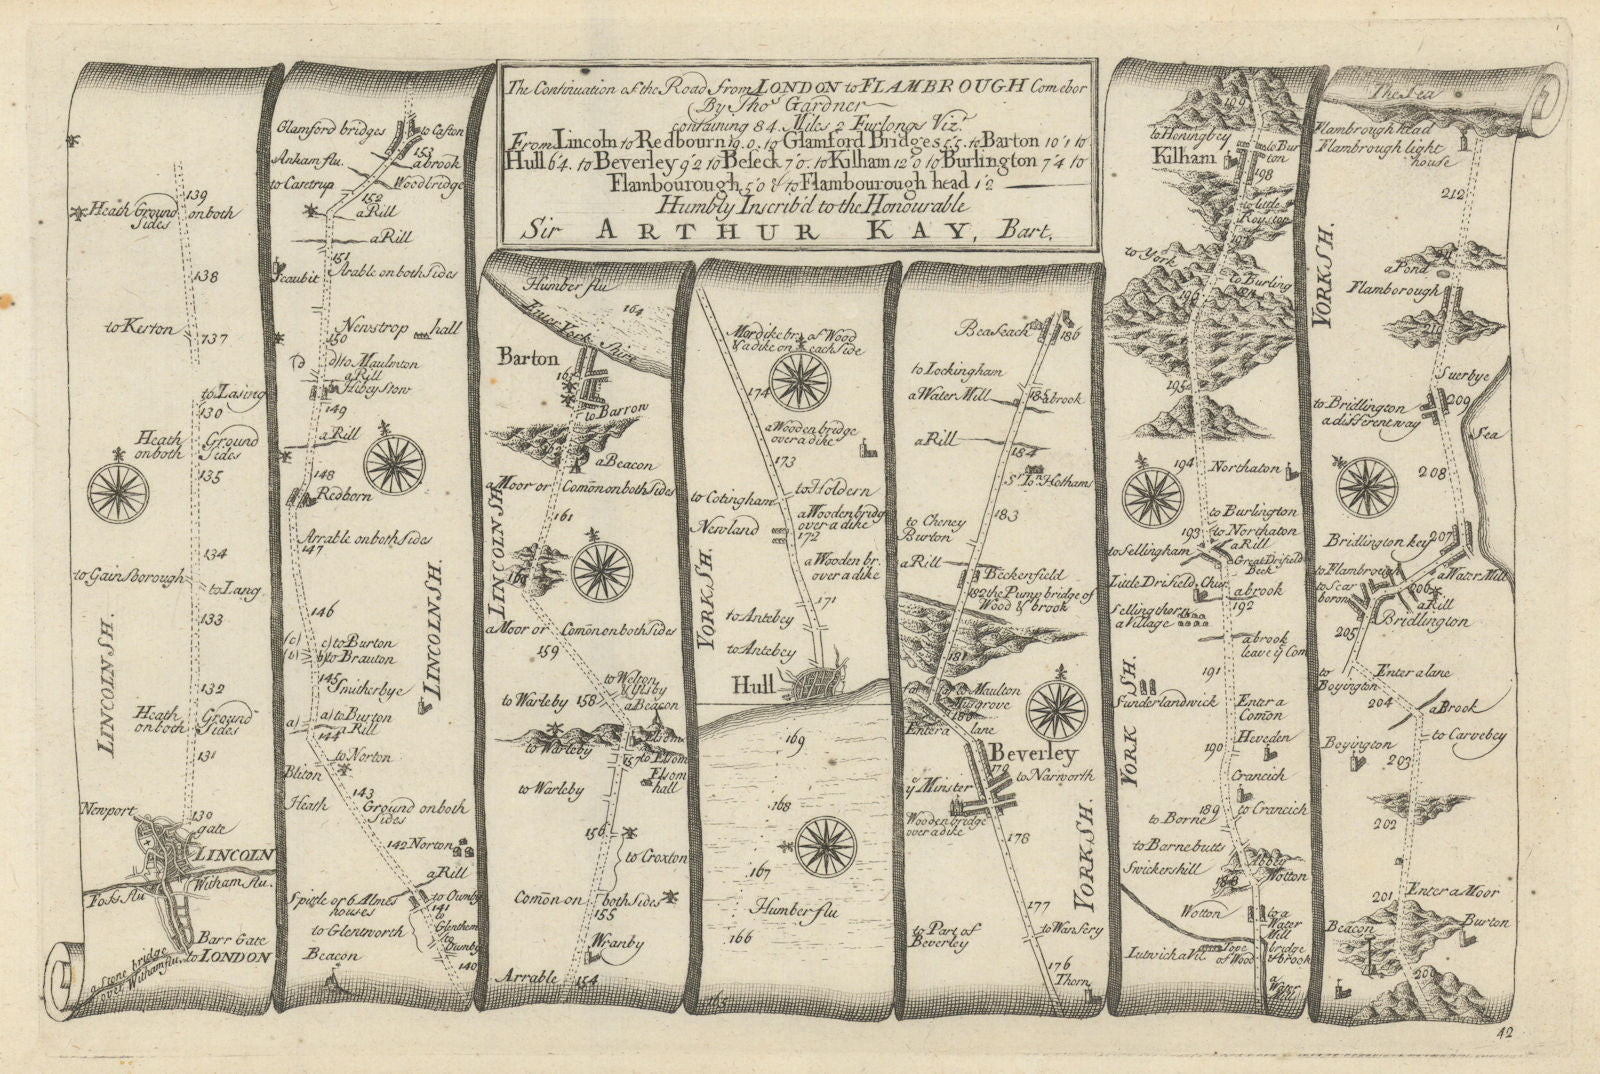 The Continuation of the Road from LONDON to FLAMBROUGH Com ebor
By Thos Gardner
containing 84 Miles 2 Furlongs Vizt.
From Lincoln to Redbourn 19.0. to Glamford Bridges 5'5. to Barton 10'1 to
Hull 6'4. to Beverley 9'2 to Beseck 7'0. to Kilham 12'0 to Burlington 7'4 to
Flambourough 5'0 & to Flambourough head 1'2
Humbly Inscrib'd to the Honourable
Sir ARTHUR KAY, Bart.
139
Heath Ground on both
Sides
138
to Kerton
137
to Lasing
130
Heath Ground
on both Sides
135
134
to Gainsborough
to Lang
133
LINCOLNSH.
132
Heath Ground
on both Sides
131
Newport
130
gate
LINCOLN
Witham flu.
Foss flu
Barr Gate
to LONDON
a Stone bridge
over Witham flu.
Glamford bridges
to Caston
153
Anham flu.
a brook
to Casetrup
Woodbridge
152
a Rill
a Rill
151
Scaubit
Arable on both Sides
Newstrop hall
150
d) to Maulmton
a Rill
Hibeystow
149
a Rill
148
Redborn
Arrable on both Sides
147
LINCOLNSH.
146
(c) c) to Burton
(b) b) to Brauton
145
Snitherbye
a) a) to Burton
a Rill
144
to Norton
Bliton
143
Heath Ground on both
Sides
142 Norton
a Rill
Spittle or 6 Almes
houses
to Ownby
141
to Glentworth
to Glenthem
to Ownby
Beacon
140
Humber flu
164
Enter York Shire
Barton
to Barrow
a Beacon
a Moor or Comōn on both Sides
LINCOLNSH.
161
160
a Moor or Comōn on both Sides
159
to Welton
& Ulsby
to Warleby 158
a Beacon
Elsom
to Warleby
157
to Elsom
Elsom
hall
to Warleby
156
to Croxton
Comōn on both Sides
155
Wranby
Arrable 154
Mordike br. of Wood
& a dike on each Side
174
a Wooden bridge
over a dike
173
to Cotingham
to Holdern
Newland
a Wooden bridg
over a dike
172
a Wooden br.
over a dike
YORKSH.
171
to Antebey
to Antebey
Hull
169
168
167
Humber flu
166
165
Beaseach
186
to Lockingham
a Water Mill
185
a brook
a Rill
184
St Jon Hothams
183
to Cheney
Burton
a Rill
Beckenfield
182
the Pump bridge of
Wood & brook
181
to Maulton
Musgrove
180
Enter a lane
Beverley
179
to Norworth
ye Minster
Wooden bridge
over a dike
178
YORKSH.
177
to Wansery
to Part of
Beverley
176
Thorn
199
to Heningbey
Kilham
to Bur
ton
198
to little
Royston
197
to York
to Burling
ton
196
195
194
Northaton
to Burlington
193
to Northaton
to Sellingham
a Rill
Great Drifield
Beek
Little Drifield Chur
a brook
192
Sellingthorn
a Village
a brook
leave ye Com
191
YORKSH.
Sunderlandwick
Enter a
Comon
190
Heveden
Crancich
189
to Crancich
to Borne
to Barnebutts
Swickershill
Abby
Wotton
188
Wotton
to a
Water
Mill
Lutwick a Vil
Tope
of Wood
bridge
& brook
a
Water
Mill
The Sea
Flambrough head
Flambrough light
house
212
YORKSH.
211
a Pond
Flamborough
210
Suerbye
to Bridlington
a different way
209
Sea
208
Bridlington key
207
to Flambrough
a Water Mill
to Scar
boron
206
a Rill
Bridlington
205
to
Boyington
Enter a lane
204
a Brook
to Carvebey
Boyington
203
202
201
Enter a Moor
Beacon
Burton
200
42